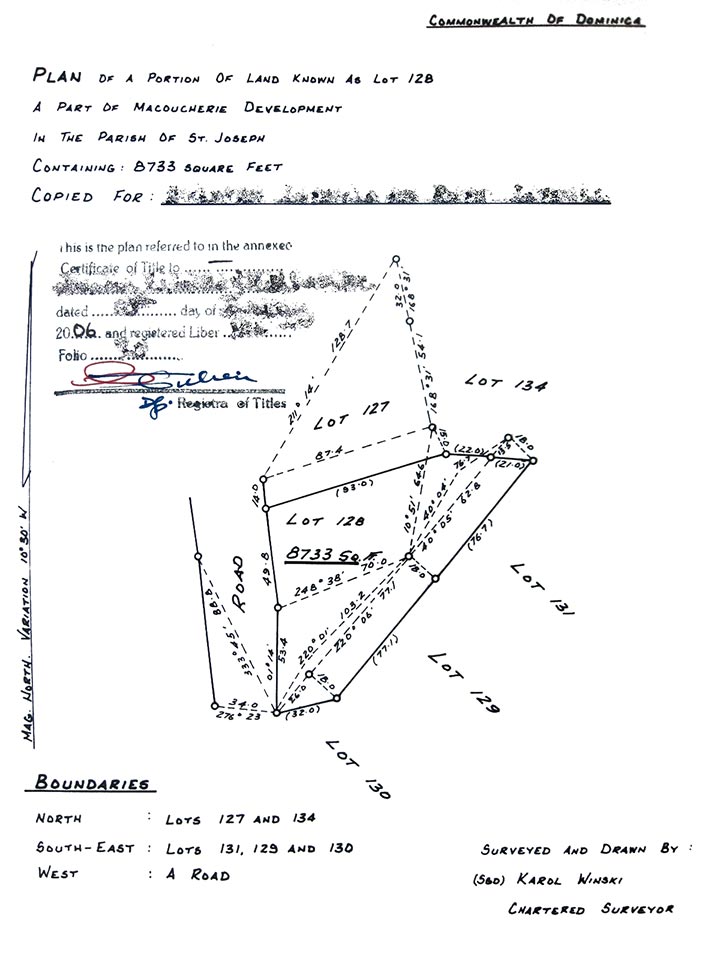 COMMONWEALTH OF DOMINICA
PLAN OF A PORTION OF LAND KNOWN AS LOT 128
A PART OF MACOUCHERIE DEVELOPMENT
IN THE PARISH OF ST. JOSEPH
CONTAINING: 8733 SQUARE FEET
COPIED FOR:
This is the plan referred to in the annexed
Certificate of Title to
dated ........ day of
2006. and registered Liber
Folio
Registra of Titles
MAG. NORTH. VARIATION 10° 30' W
32.0
168° 31'
54.1
168° 31'
128.7
211° 14'
LOT 134
LOT 127
87.4
(93.0)
14.0
15.0
(22.0)
18.0
(21.0)
64.6
10° 51'
40° 04'
62.8
40° 05'
(76.7)
LOT 128
8733 SQ.F.
70.0
248° 38'
49.8
ROAD
88.9
333° 45'
18.0
103.2
220° 01'
77.1
220° 06'
(77.1)
LOT 131
53.4
01° 14'
18.0
26.0
34.0
276° 23
(32.0)
LOT 129
LOT 130
BOUNDARIES
NORTH : LOTS 127 AND 134
SOUTH-EAST : LOTS 131, 129 AND 130
WEST : A ROAD
SURVEYED AND DRAWN BY :
(SGD) KAROL WINSKI
CHARTERED SURVEYOR